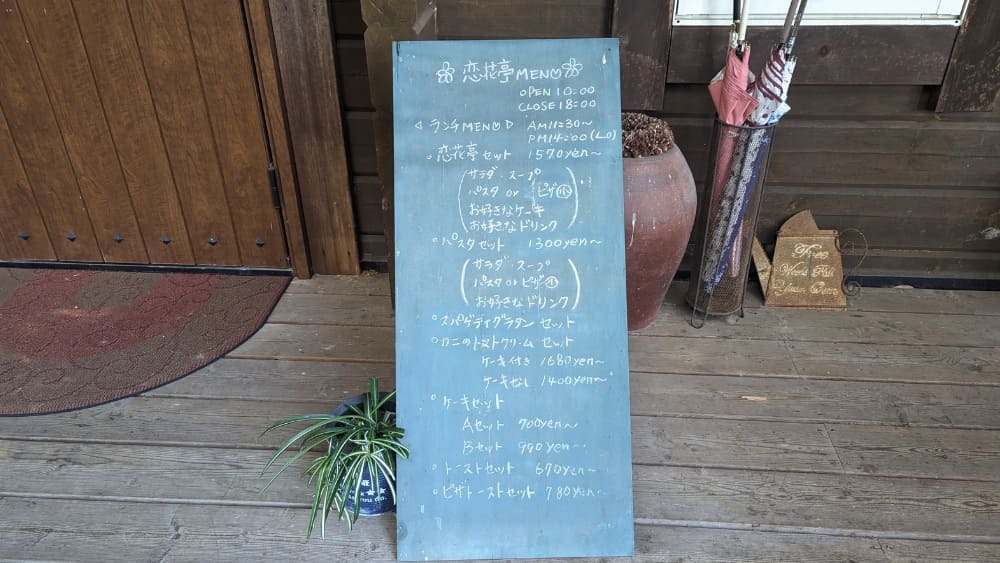 恋花亭 MENU
OPEN 10:00
CLOSE 18:00
◁ ランチMENU ▷ AM11:30~
PM14:00(L.O)
。恋花亭セット 1570yen~
サラダ・スープ
パスタ or ピザ㊙
お好きなケーキ
お好きなドリンク
。パスタセット 1300yen~
サラダ・スープ
パスタ or ピザ
お好きなドリンク
。スパゲティグラタン セット
。カニのトマトクリーム セット
ケーキ付き 1680yen~
ケーキなし 1400yen~
。ケーキセット
Aセット 700yen~
Bセット 990yen~
。トーストセット 670yen~
。ピザトーストセット 780yen~